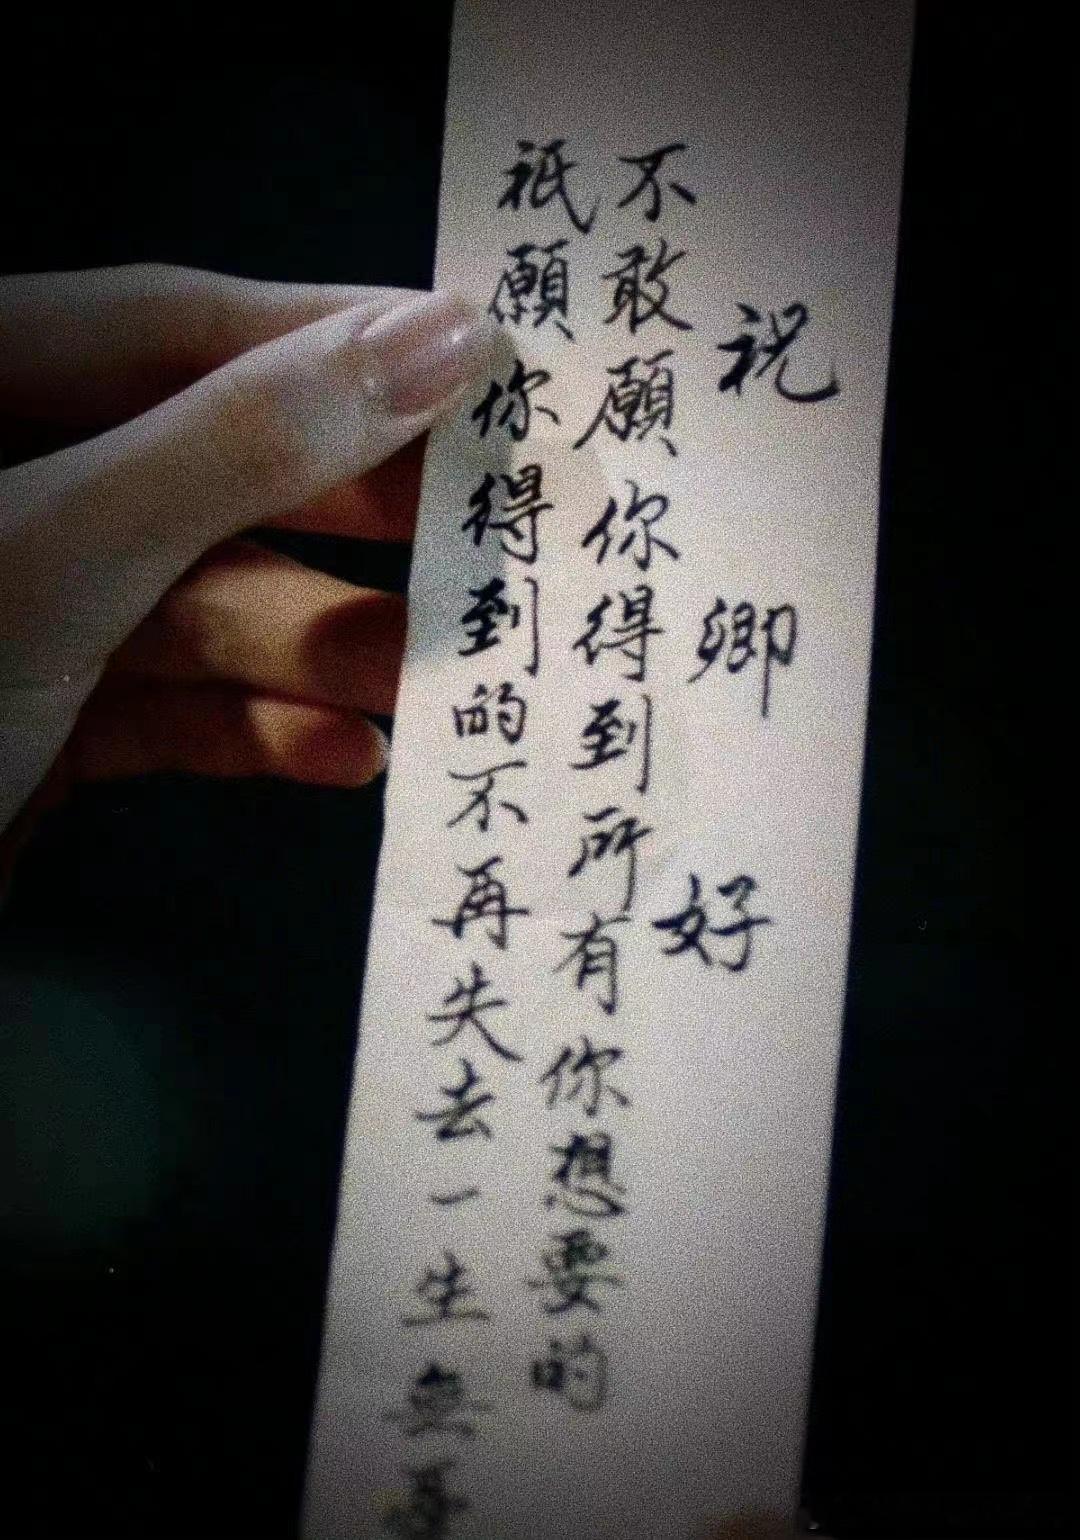 祝卿好
不敢願你得到所有你想要的
祇願你得到的不再失去一生無